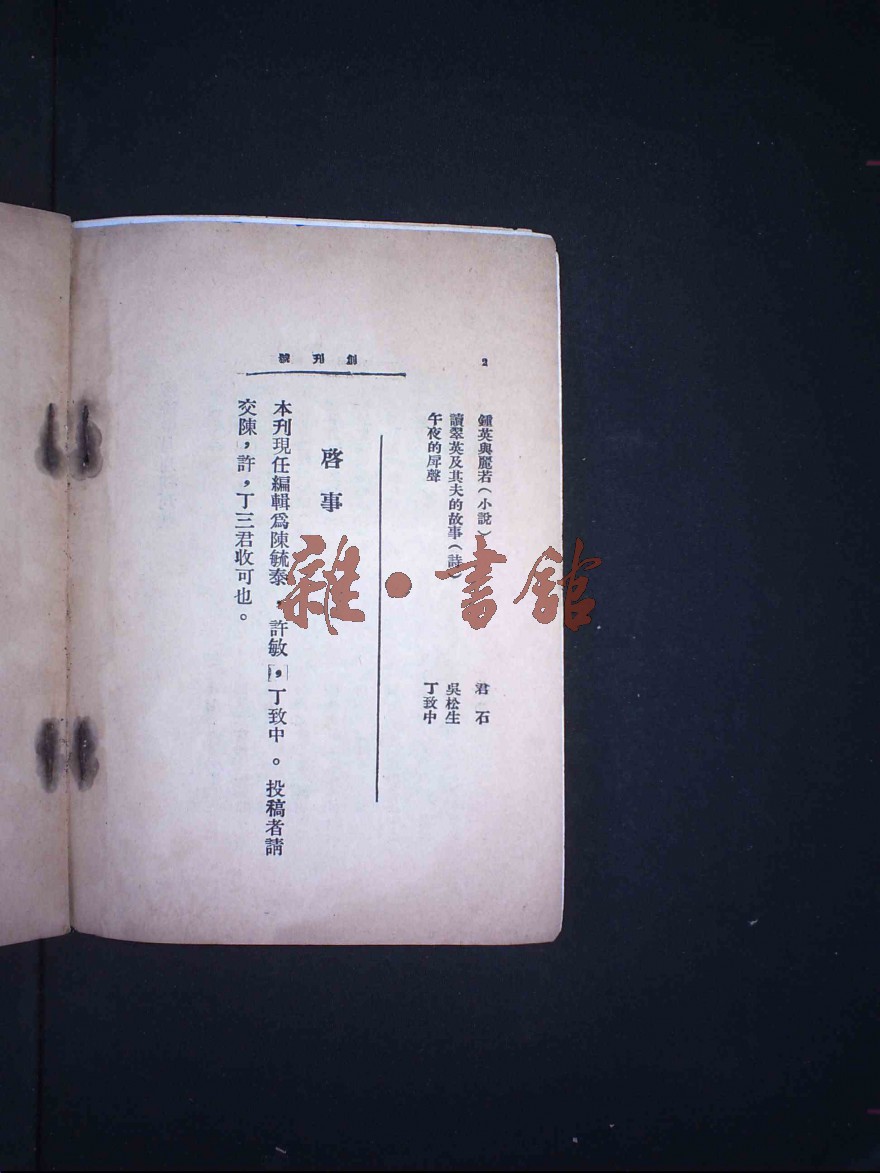 2
創刊號
鍾英與麗若（小說）
君石
讀翠英及其夫的故事（詩）
吳松生
午夜的屛聲
丁致中
啓事
本刊現任編輯爲陳毓泰，許敏，丁致中。投稿者請
交陳，許，丁三君收可也。
雜·書館